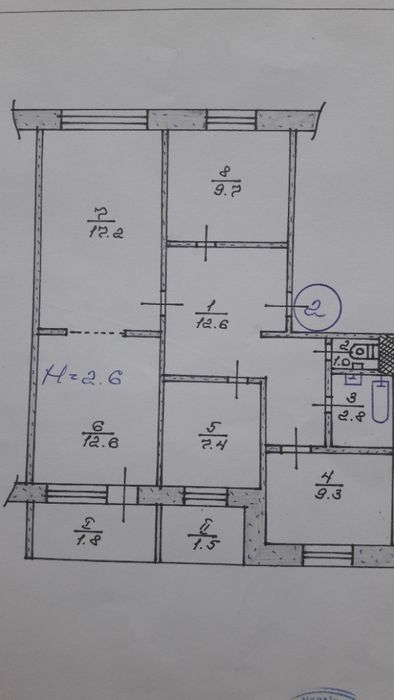 8
9.7
7
17.2
1
12.6
2
2
1.0
H=2.6
3
2.8
6
12.6
5
7.4
4
9.3
I
1.8
II
1.5